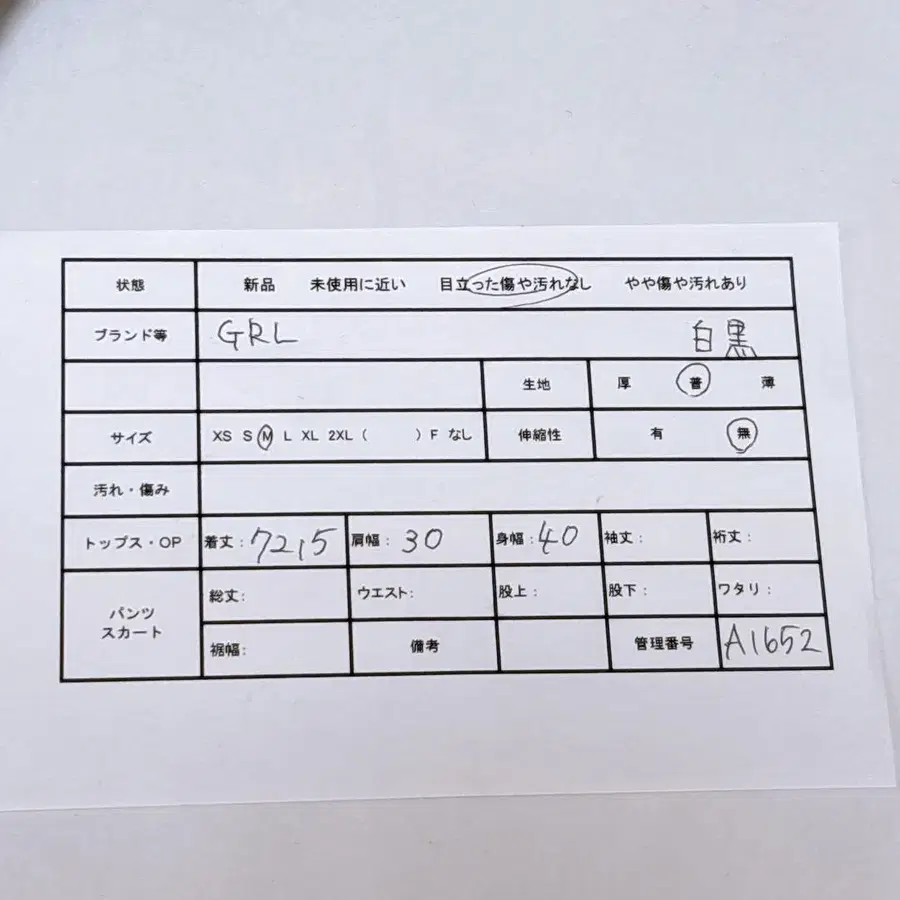 状態 新品 未使用に近い 目立った傷や汚れなし やや傷や汚れあり
ブランド等 GRL 白黒
生地 厚 普 薄
サイズ XS S M L XL 2XL ( ) F なし 伸縮性 有 無
汚れ・傷み
トップス・OP 着丈: 72,5 肩幅: 30 身幅: 40 袖丈: 裄丈:
パンツ スカート 総丈: ウエスト: 股上: 股下: ワタリ:
裾幅: 備考 管理番号 A1652